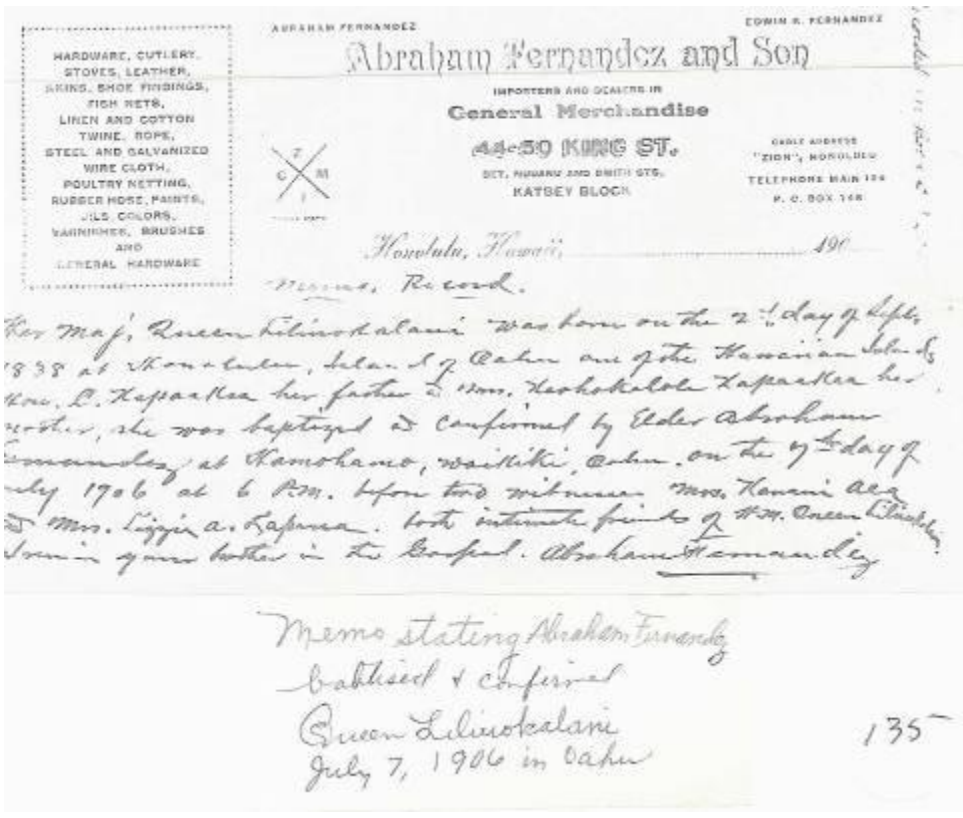 HARDWARE, CUTLERY,
STOVES, LEATHER,
SKINS, SHOE FINDINGS,
FISH NETS,
LINEN AND COTTON
TWINE, ROPE,
STEEL AND GALVANIZED
WIRE CLOTH,
POULTRY NETTING,
RUBBER HOSE, PAINTS,
OILS, COLORS,
VARNISHES, BRUSHES
AND
GENERAL HARDWARE
ABRAHAM FERNANDEZ
EDWIN K. FERNANDEZ
Abraham Fernandez and Son
IMPORTERS AND DEALERS IN
General Merchandise
44-50 KING ST.
BET. NUUANU AND SMITH STS.
KATSEY BLOCK
Z
C M
I
CABLE ADDRESS
"ZION", HONOLULU
TELEPHONE MAIN
P. O. BOX
Honolulu, Hawaii, 190
Record.
Her Maj. Queen Liliuokalani was born on the 2d day of Sept.
1838 at Honolulu, Island of Oahu one of the Hawaiian Islands
Hon. C. Kapaakea her father & Mrs. Keohokalole Kapaakea her
mother, she was baptized & confirmed by Elder Abraham
Fernandez at Hamohamo, Waikiki, Oahu. on the 7th day of
July 1906 at 6 P.M. before two witnesses Mrs.
& Mrs. Lizzie a. both intimate friends of H.M. Queen Liliuokalani.
brother in the Gospel. Abraham Fernandez
Memo stating Abraham Fernandez
babtised & confirmed
Queen Liliuokalani
July 7, 1906 in Oahu
135